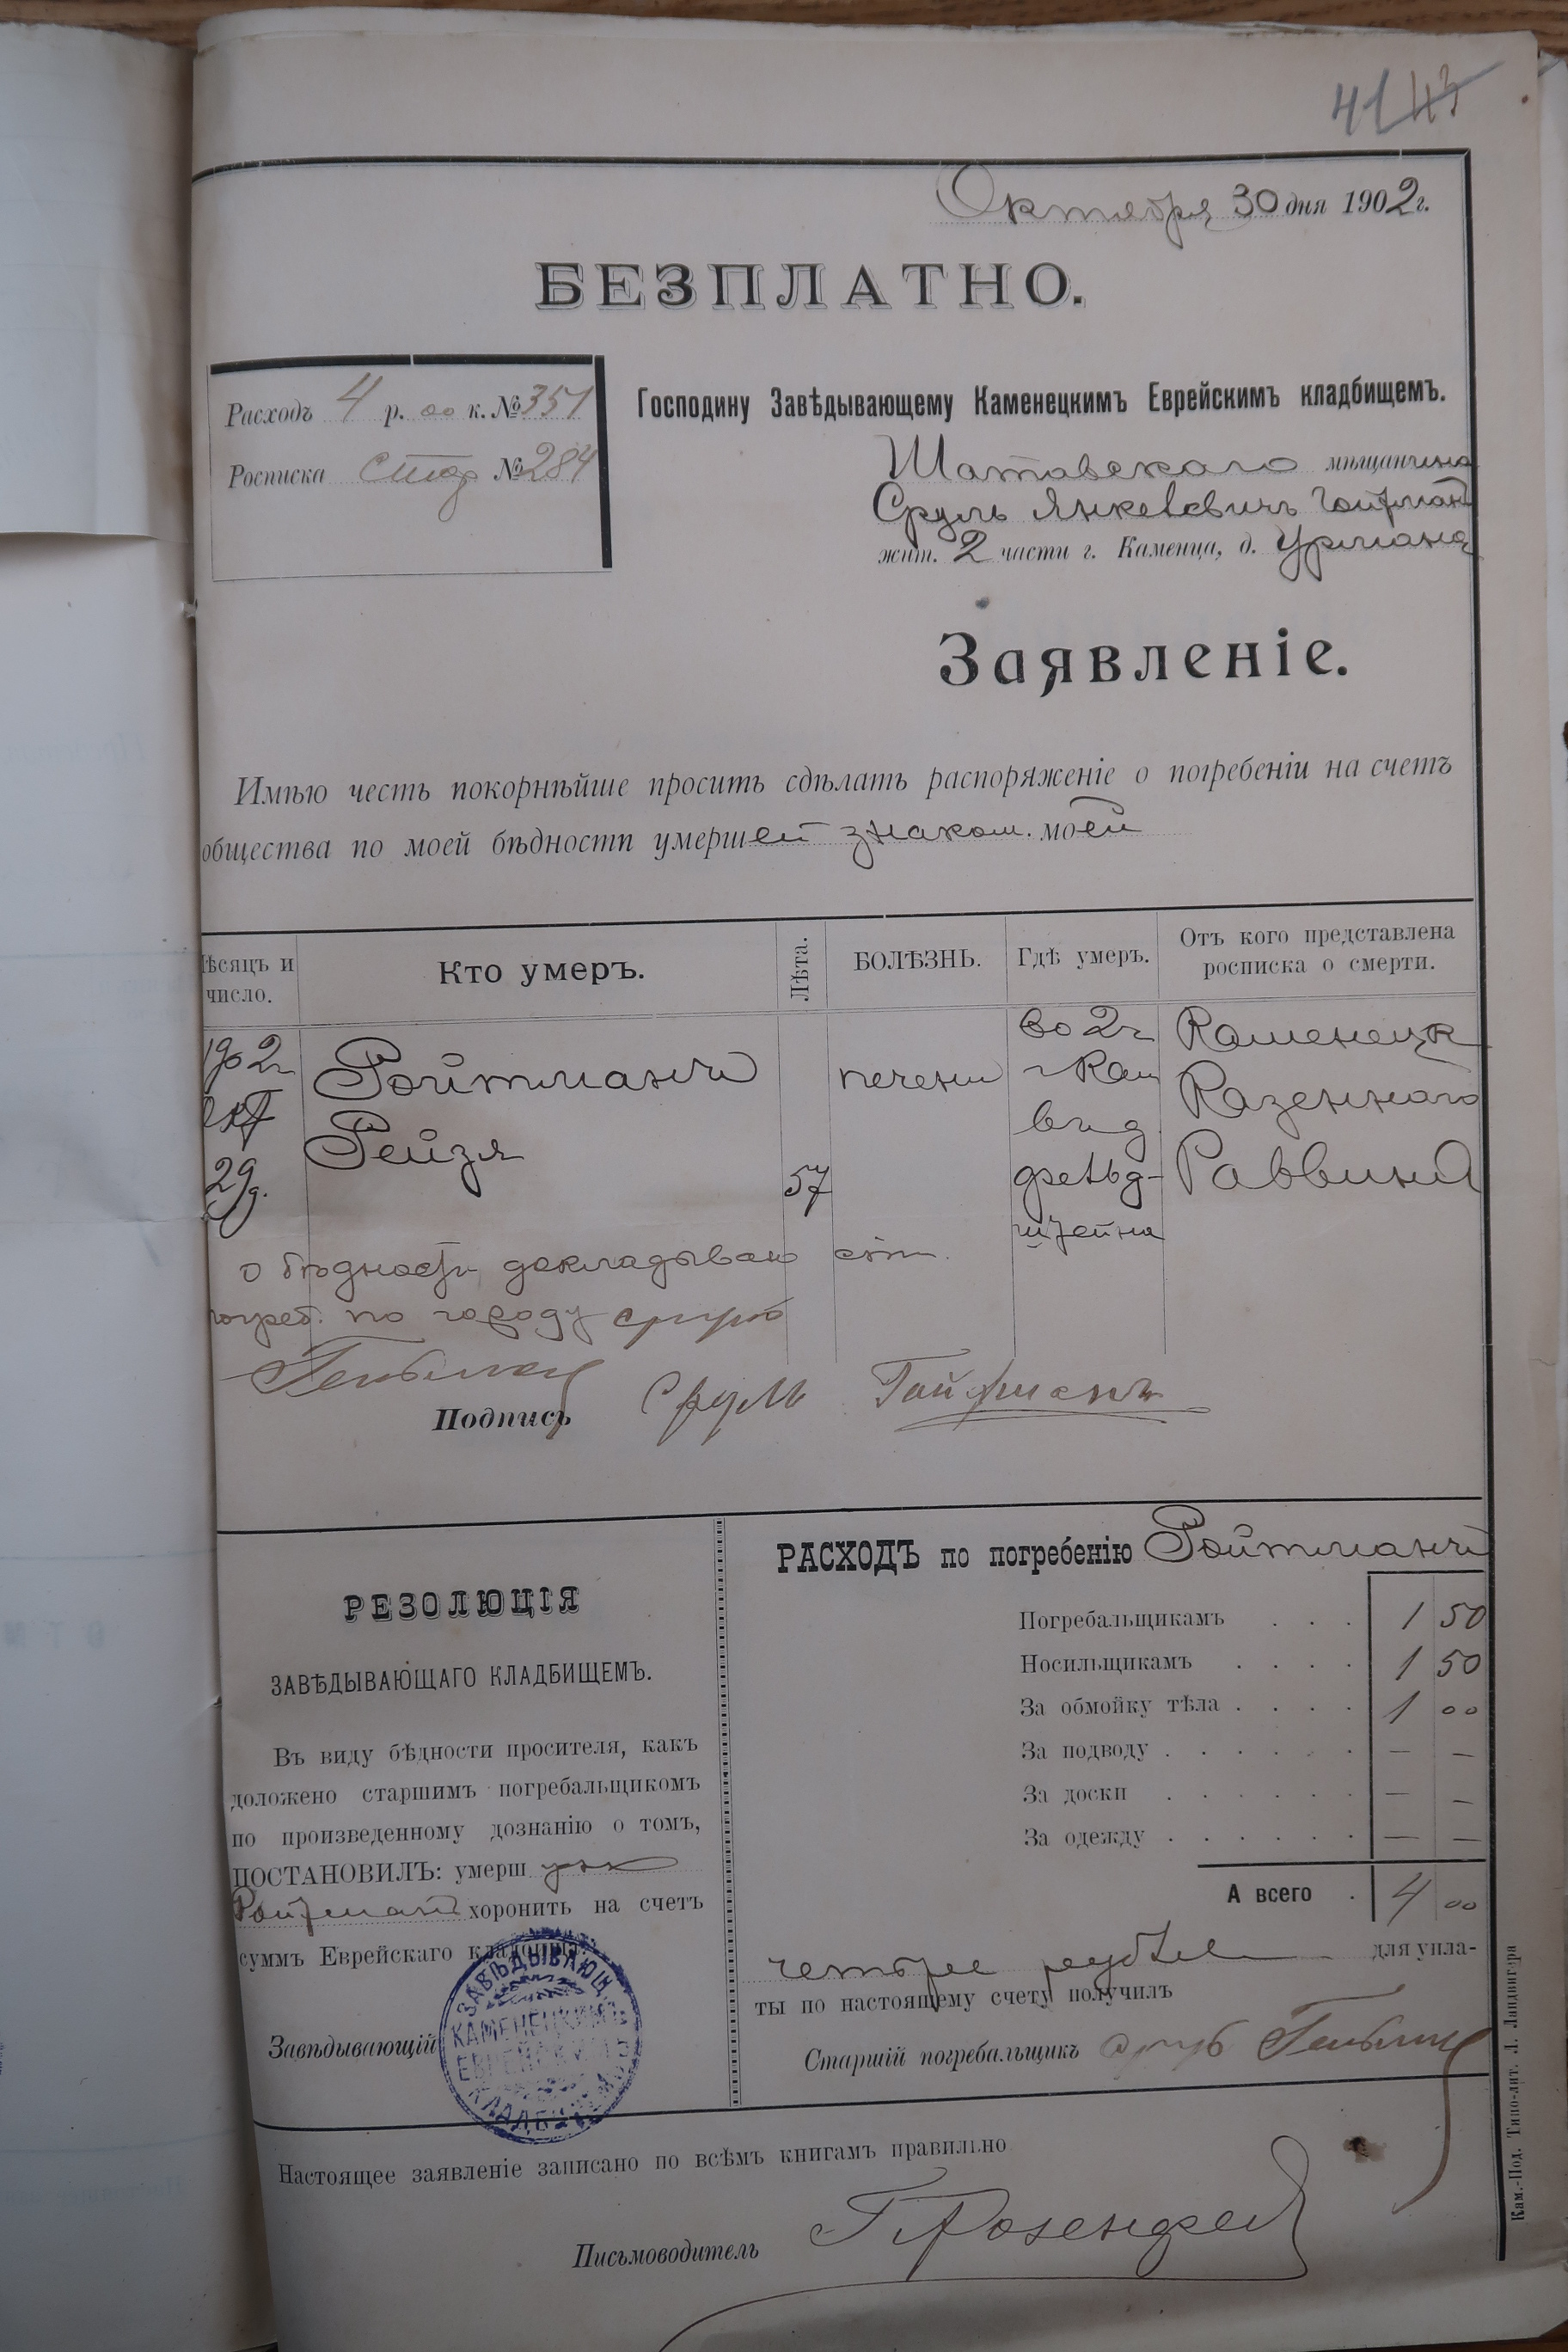 41 43
Октября 30 дня 1902 г.
БЕЗПЛАТНО.
Расходъ 4 р. 00 к. № 351
Росписка № 284
Господину Завѣдывающему Каменецкимъ Еврейскимъ кладбищемъ.
Шатавскаго мѣщанина
Сруль Янкевович Гойхман
жит. 2 части г. Каменца, д. Урмана
Заявленіе.
Имѣю честь покорнѣйше просить сдѣлать распоряженіе о погребеніи на счетъ
общества по моей бѣдности умершей знаком. моей
мѣсяцъ и число.
Кто умеръ.
Лѣта.
БОЛѢЗНЬ.
Гдѣ умеръ.
Отъ кого представлена росписка о смерти.
1902 г
окт
29 д.
Ройтманъ
Рейзя
57
печени
во 2 ч
г Кам
в д
фельд-
штейна
Каменецк
Казеннаго
Раввина
о бѣдности докладываю
погреб. по городу
Подпись Сруль Гойхманъ
РЕЗОЛЮЦІЯ
ЗАВѢДЫВАЮЩАГО КЛАДБИЩЕМЪ.
Въ виду бѣдности просителя, какъ
доложено старшимъ погребальщикомъ
по произведенному дознанію о томъ,
ПОСТАНОВИЛЪ: умерш
Ройтман хоронить на счетъ
суммъ Еврейскаго кладбища.
Завѣдывающій
ЗАВѢДЫВАЮЩ.
КАМЕНЕЦКИМЪ
ЕВРЕЙСКИМЪ
КЛАДБИЩЕМЪ
РАСХОДЪ по погребенію Ройтманъ
Погребальщикамъ . . . 1 50
Носильщикамъ . . . . 1 50
За обмойку тѣла . . . . 1 00
За подводу . . . . . . — —
За доски . . . . . . — —
За одежду . . . . . . — —
А всего . 4 00
четыре рубля для упла-
ты по настоящему счету получилъ
Старшій погребальщикъ
Настоящее заявленіе записано по всѣмъ книгамъ правильно
Письмоводитель Розенфел
Кам.-Под. Типо-лит. Л. Ландвигера